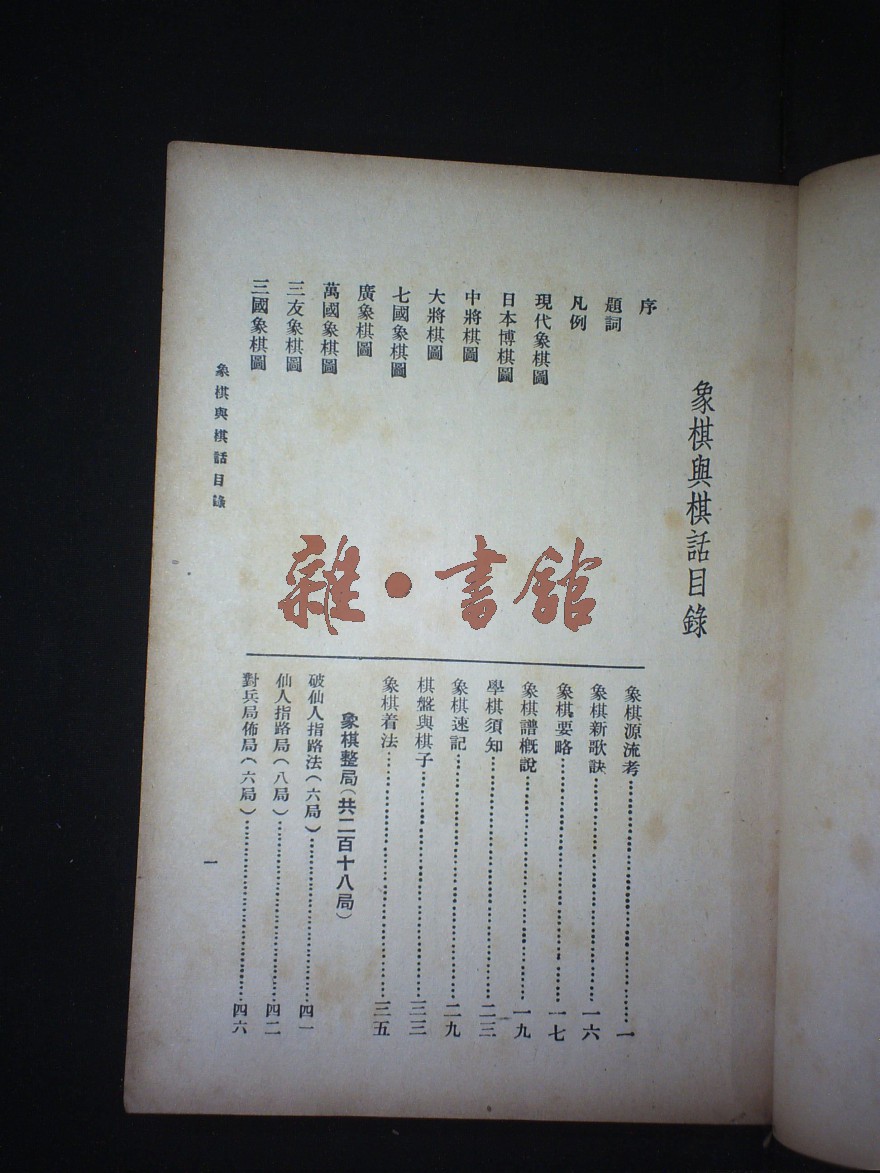 象棋與棋話目錄
序
題詞
凡例
現代象棋圖
日本博棋圖
中將棋圖
大將棋圖
七國象棋圖
廣象棋圖
萬國象棋圖
三友象棋圖
三國象棋圖
象棋源流考…………一
象棋新歌訣…………一六
象棋要略…………一七
象棋譜概說…………一九
學棋須知…………二三
象棋速記…………二九
棋盤與棋子…………三三
象棋着法…………三五
象棋整局(共二百十八局)
破仙人指路法(六局)…………四一
仙人指路局(八局)…………四二
對兵局佈局(六局)…………四六
象棋與棋話目錄
一
雜•書館